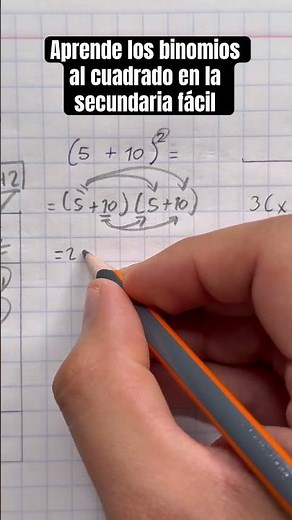 Aprende los binomios
al cuadrado en la
secundaria fácil
(5 + 10)² =
= (5 + 10) (5 + 10)
3(x
= 2
+2